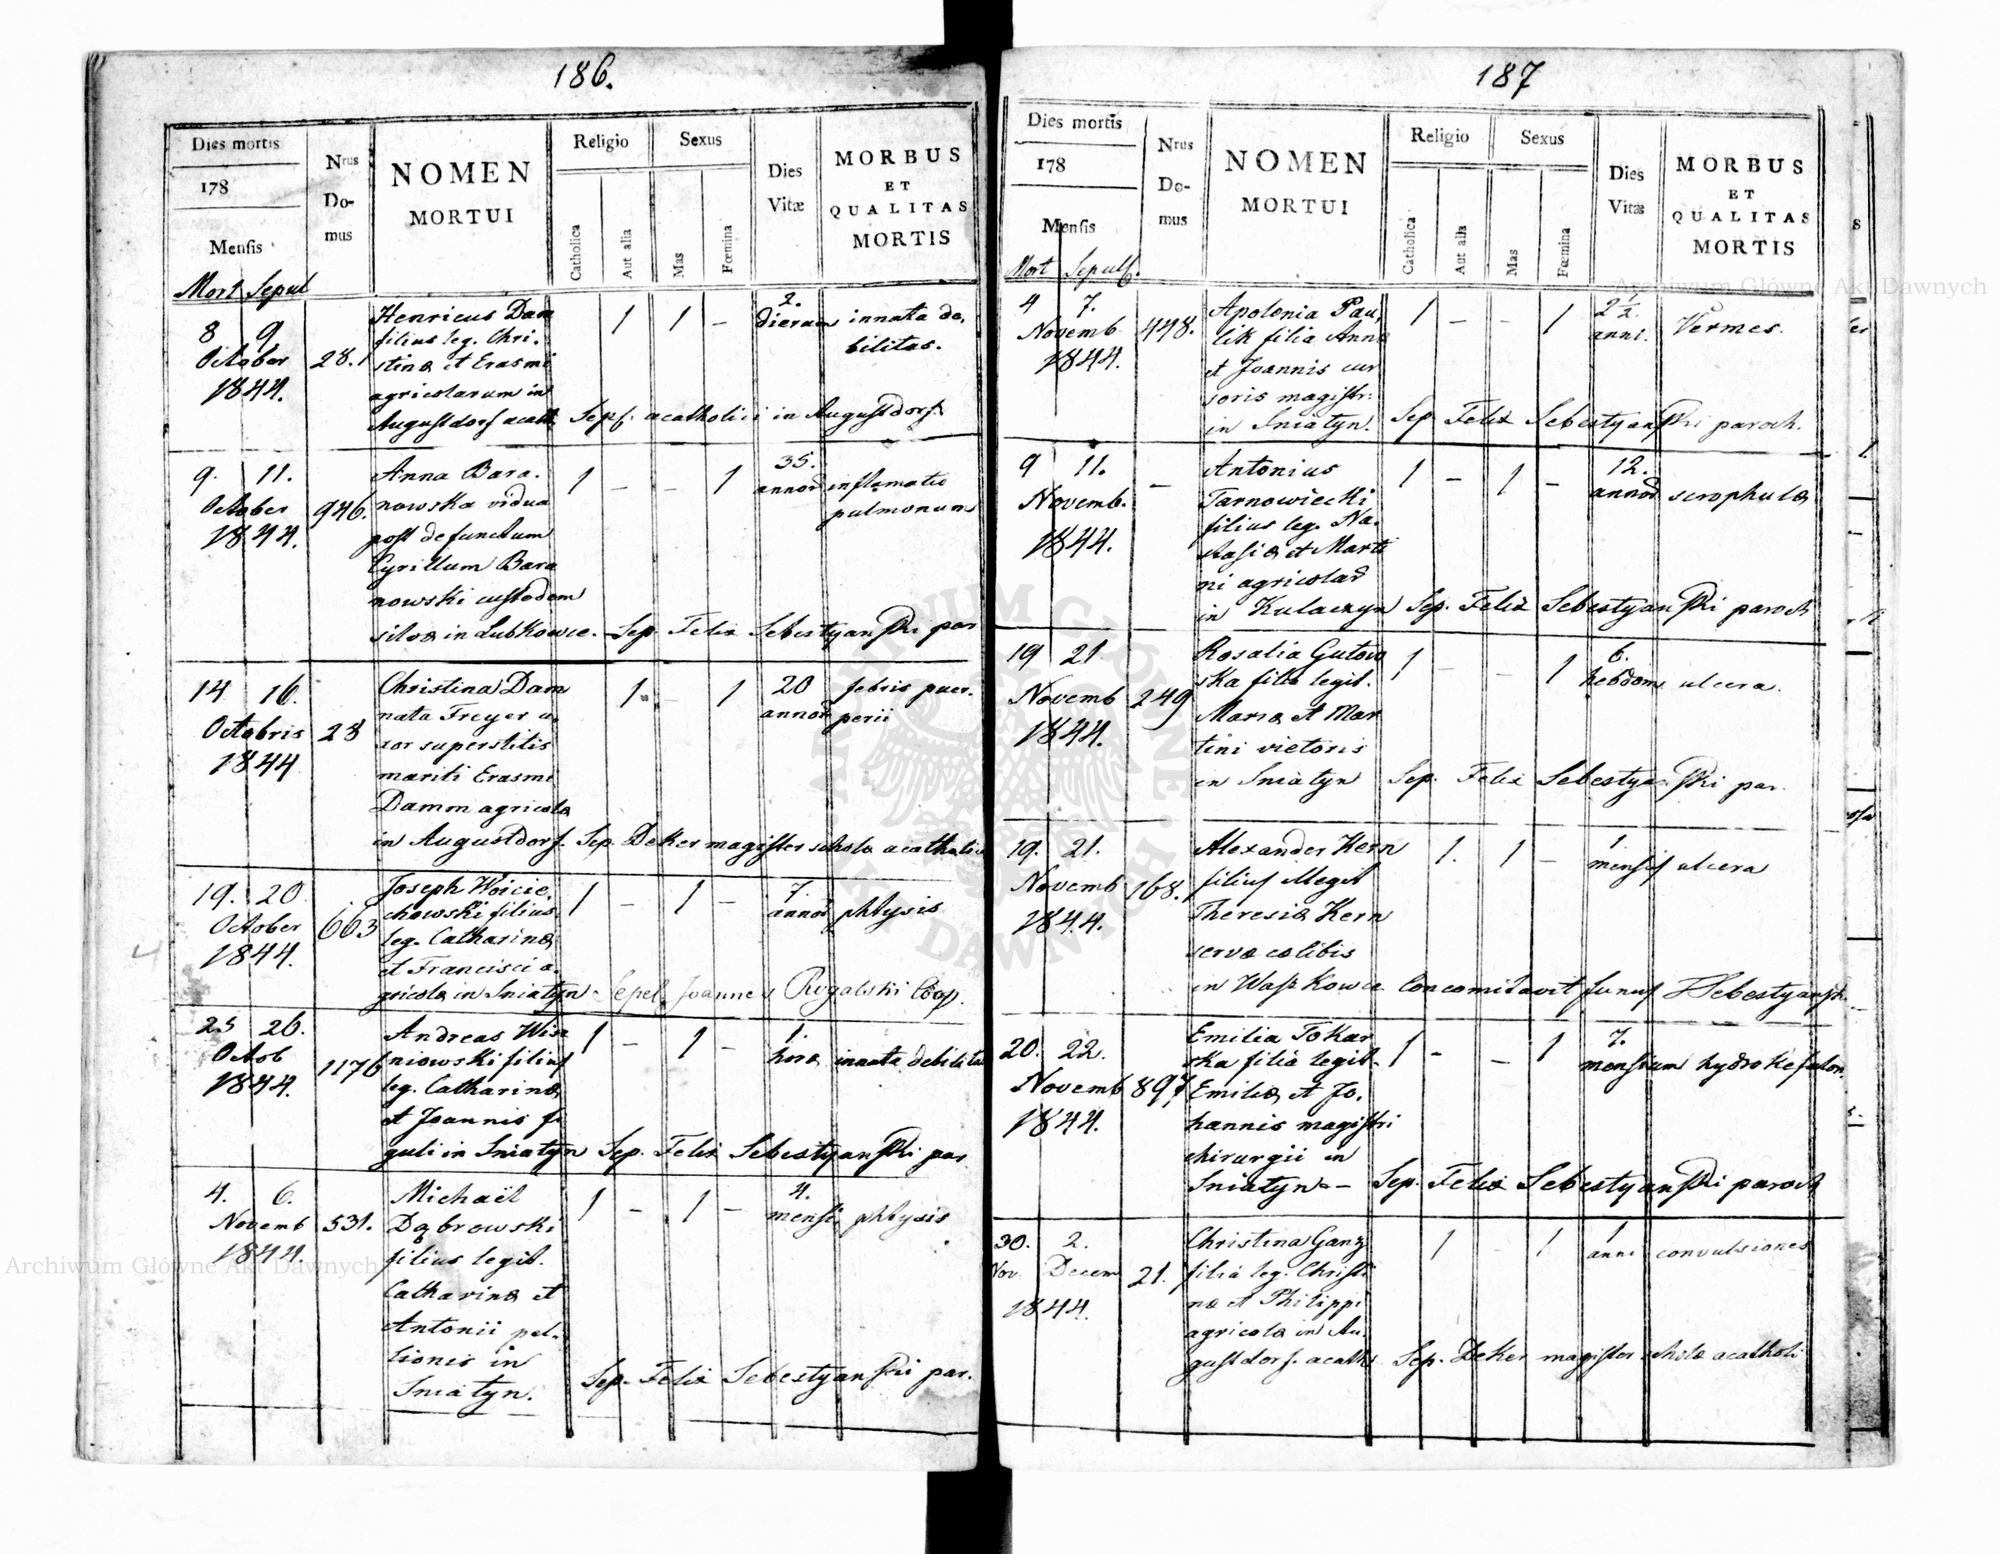 186.
Dies mortis
178
Mensis
Mort Sepul
Nrus
Do-
mus
NOMEN
MORTUI
Religio
Catholica
Aut alia
Sexus
Mas
Fœmina
Dies
Vitæ
MORBUS
ET
QUALITAS
MORTIS
8 9
October
1844.
28.
Henricus Dam
filius leg. Chri-
stinæ et Erasmi
agricolarum in
Augustdorf acath.
1 1 –
2.
dierum
innata de-
bilitas.
Sep. acatholici in Augustdorf.
9. 11.
October
1844.
946.
Anna Bara-
nowska vidua
post defunctum
Cyrillum Bara
nowski custodem
silvæ in Lubkowce.
1 – – 1
35.
annor
inflamatio
pulmonum
Sep. Felix Sebestyański par
14 16.
Octobris
1844
28
Christina Dam
nata Freyer u-
xor superstitis
mariti Erasmi
Damm agricolæ
in Augustdorf.
1 – 1
20
annor
febris puer-
perii
Sep. Deker magister scholæ acatholic
19. 20
October
1844.
663
Joseph Woicie-
chowski filius
leg. Catharinæ
et Francisci a-
gricolæ in Sniatyn
1 – 1 –
7.
annor
phtysis
Sepel. Joannes Rogalski Coop.
25 26.
Octob
1844.
1176
Andreas Wisz
niowski filius
leg. Catharinæ
et Joannis fi
guli in Sniatyn
1 – 1 –
1.
hora
innata debilitas
Sep. Felix Sebestyański par
4. 6.
Novemb
1844.
531.
Michaël
Dąbrowski
filius legit.
Catharinæ et
Antonii pel-
lionis in
Sniatyn.
1 – 1 –
4.
mensi
phtysis
Sep. Felix Sebestyański par.
187
Dies mortis
178
Mensis
Mort Sepult.
Nrus
Do-
mus
NOMEN
MORTUI
Religio
Catholica
Aut alia
Sexus
Mas
Fœmina
Dies
Vitæ
MORBUS
ET
QUALITAS
MORTIS
4 7.
Novemb
1844.
448.
Apolonia Pau-
lik filia Annæ
et Joannis cur
soris magistr:
in Sniatyn.
1 – – 1
2 1/2.
anni.
Vermes.
Sep Felix Sebestyański paroch.
9 11.
Novemb.
1844.
–
Antonius
Tarnowiecki
filius leg. Na-
stasiæ et Marti
ni agricolar
in Kulaczyn
1 – 1 –
12.
annor
scrophulæ
Sep. Felix Sebestyański paroch
19 21
Novemb
1844.
249
Rosalia Gutow
ska filia legit.
Mariæ et Mar
tini vietoris
in Sniatyn
1 – – 1
6.
hebdom
ulcera.
Sep. Felix Sebestyański par.
19. 21.
Novemb
1844.
168.
Alexander Kern
filius illegit
Theresiæ Kern
servæ cælibis
in Waszkowce
1. 1 –
1.
mensis
ulcera
Concomitavit funus FSebestyański
20. 22.
Novemb
1844.
897
Emilia Tokar
ska filia legit.
Emiliæ et Jo-
hannis magistri
chirurgii in
Sniatyn –
1 – – 1
7.
mensium
hydrokefalon.
Sep. Felix Sebestyański paroch
30. 2.
Nov. Decem
1844.
21.
Christina Ganz
filia leg. Christi
næ et Philippi
agricolæ in Au-
gustdorf. acath.
1 – 1
1
anni
convulsiones
Sep. Deker magister scholæ acatholi
Archiwum Główne Akt Dawnych
Archiwum Główne Akt Dawnych
ARCHIWUM GŁÓWNE AKT DAWNYCH